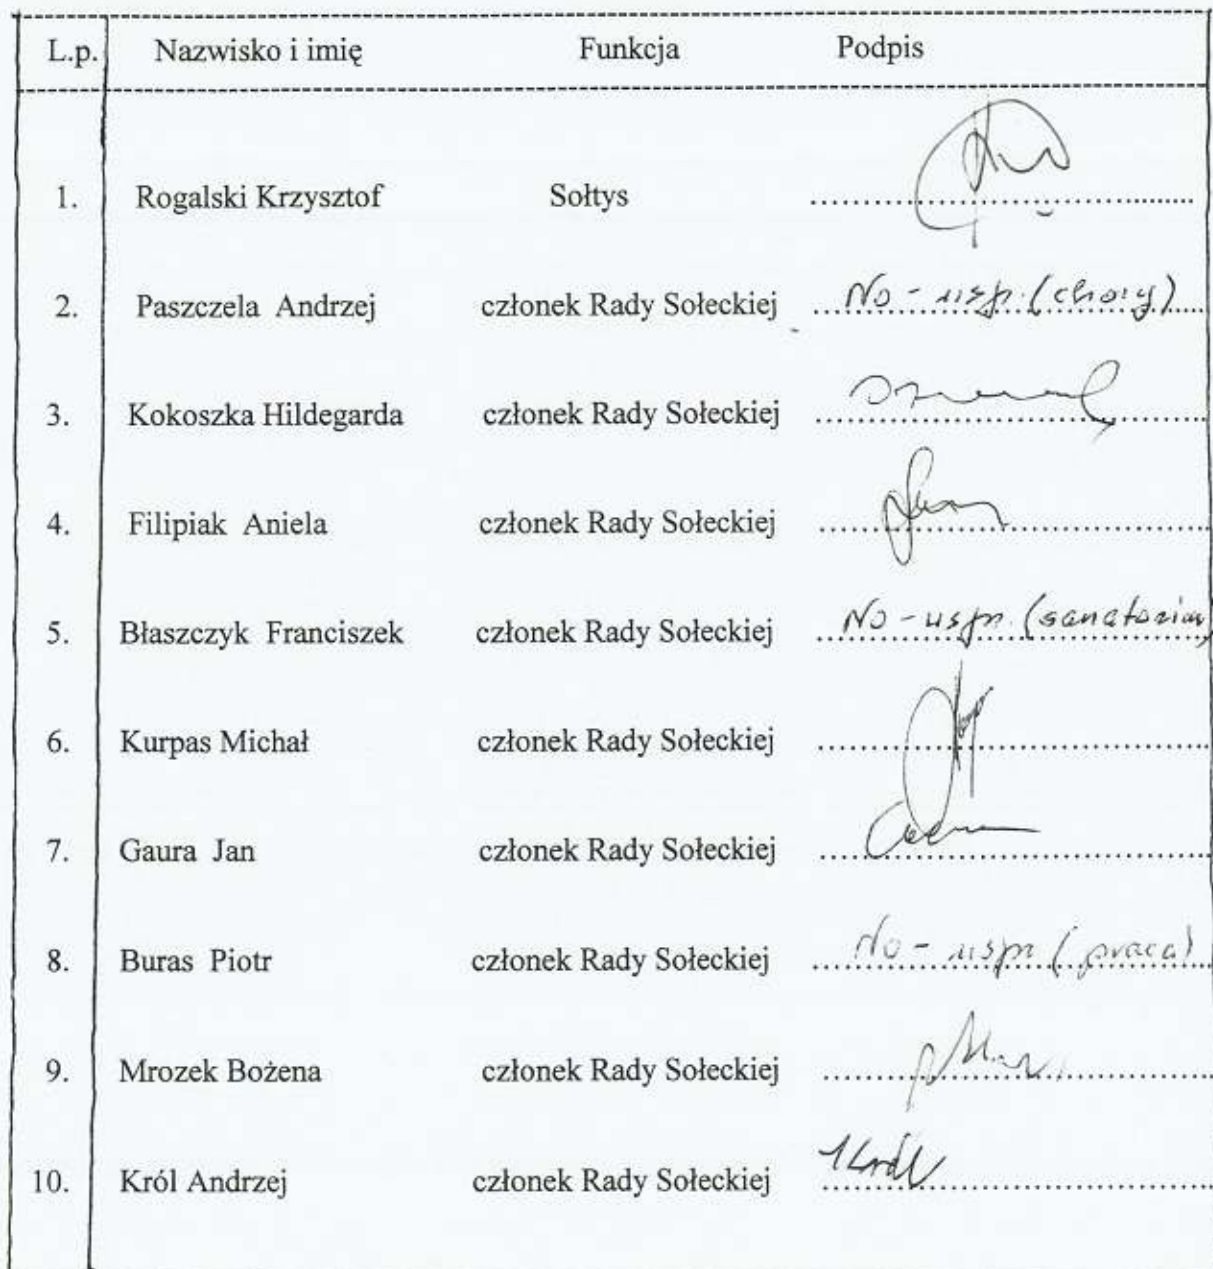 L.p. Nazwisko i imię Funkcja Podpis
1. Rogalski Krzysztof Sołtys
2. Paszczela Andrzej członek Rady Sołeckiej No - usp. (chory)
3. Kokoszka Hildegarda członek Rady Sołeckiej
4. Filipiak Aniela członek Rady Sołeckiej
5. Błaszczyk Franciszek członek Rady Sołeckiej No - uspr. (sanatorium)
6. Kurpas Michał członek Rady Sołeckiej
7. Gaura Jan członek Rady Sołeckiej
8. Buras Piotr członek Rady Sołeckiej No - uspr (praca)
9. Mrozek Bożena członek Rady Sołeckiej
10. Król Andrzej członek Rady Sołeckiej Król